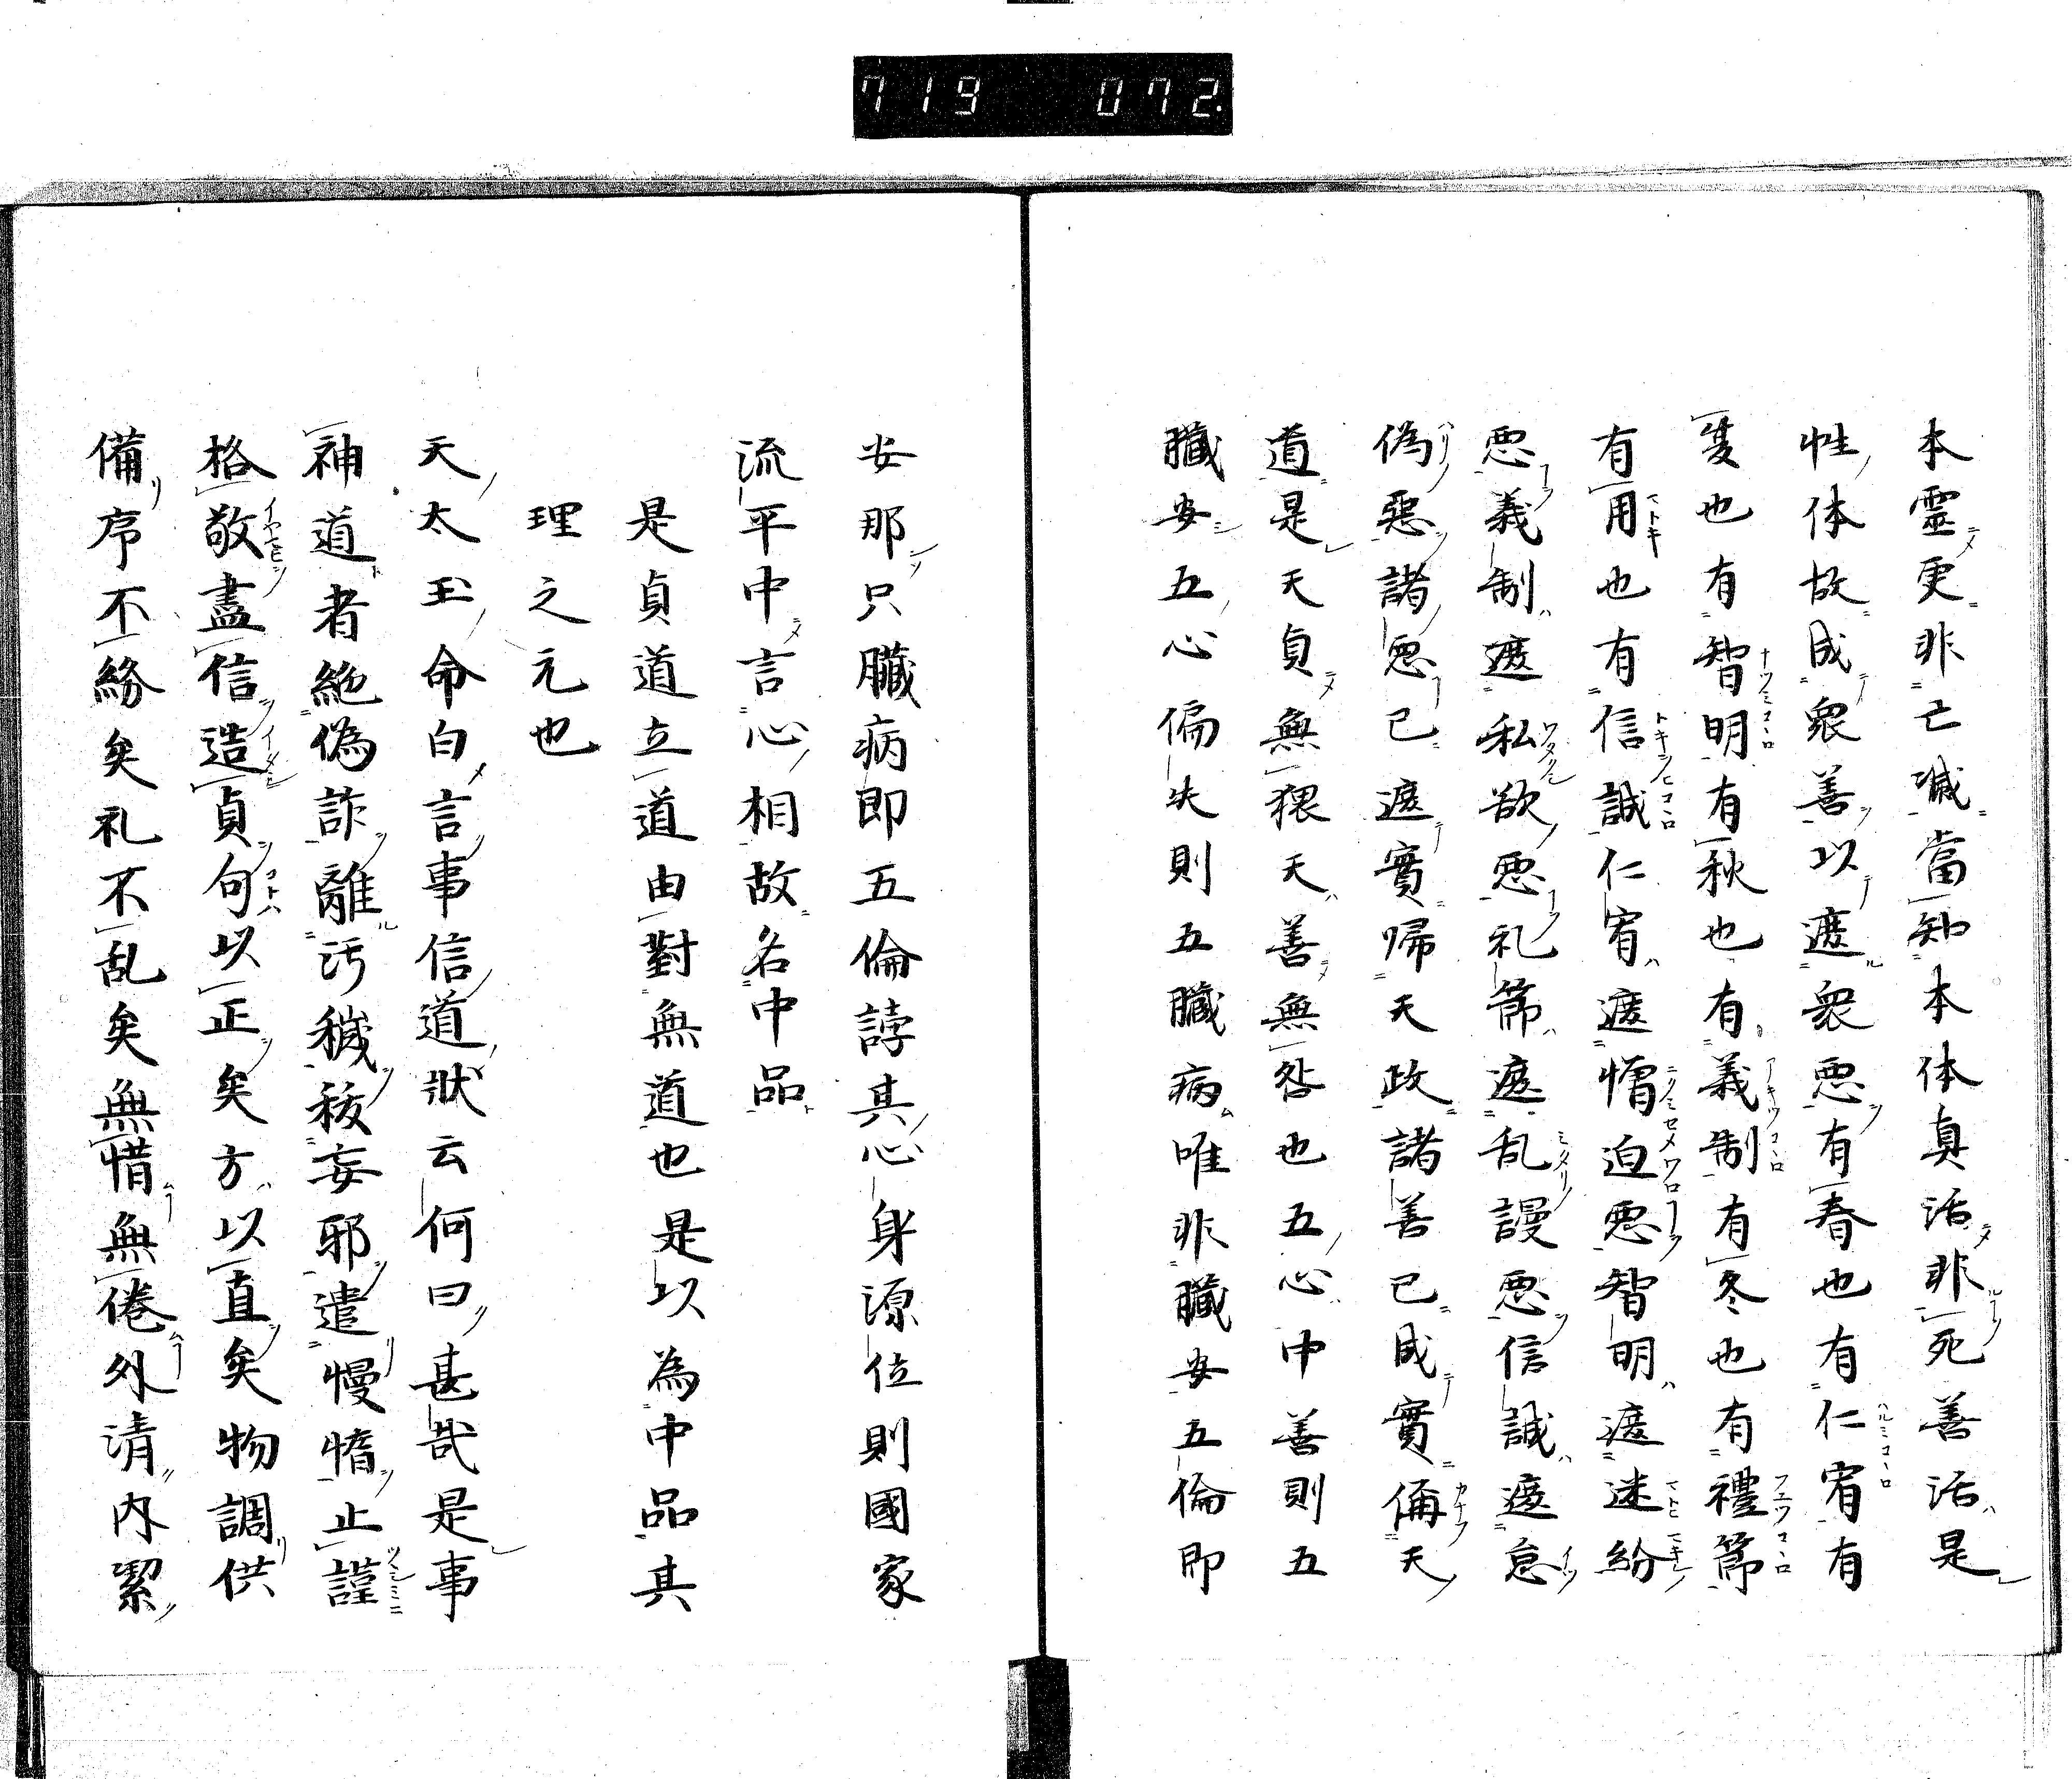 719 072.
本靈更非亡滅當知本体真活非死善活是
性体故成衆善以遮衆悪有春也有仁宥有
夏也有智明有秋也有義制有冬也有禮節
有用也有信誠仁宥遮惰迫悪智明遮迷紛
悪義制遮私欲悪礼節遮乱謾悪信誠遮怠
偽惡諸悪已遮實帰天政諸善已成實備天
道是天貞無猥天善無咎也五心中善則五
臓安五心偏失則五臓病唯非臓安五倫即
安那只臓病即五倫誖其心身源位則國家
流平中言心相故名中品
是貞道立道由對無道也是以為中品其
理之元也
天太玉命白言事信道状云何曰甚哉是事
神道者絶偽詐離汚穢祓妄邪遣慢惰止謹
格敬盡信造貞句以正矣方以直矣物調供
備序不紛矣礼不乱矣無惜無倦外清内潔